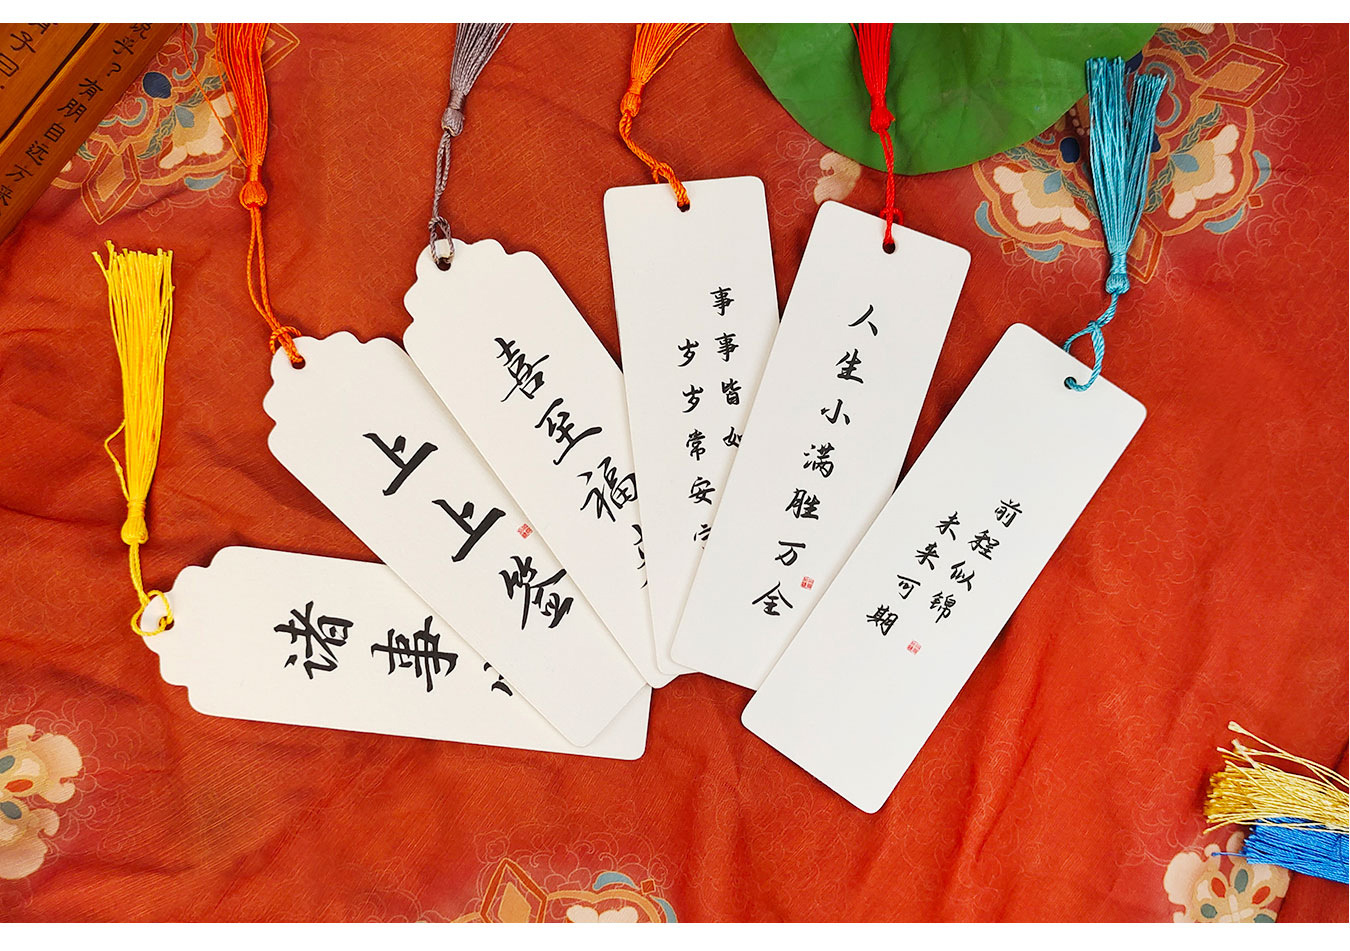 子曰
学?有朋自远方来
诸事
上上签
喜至福
事事皆如
岁岁常安
人生小满胜万全
前程似锦
未来可期